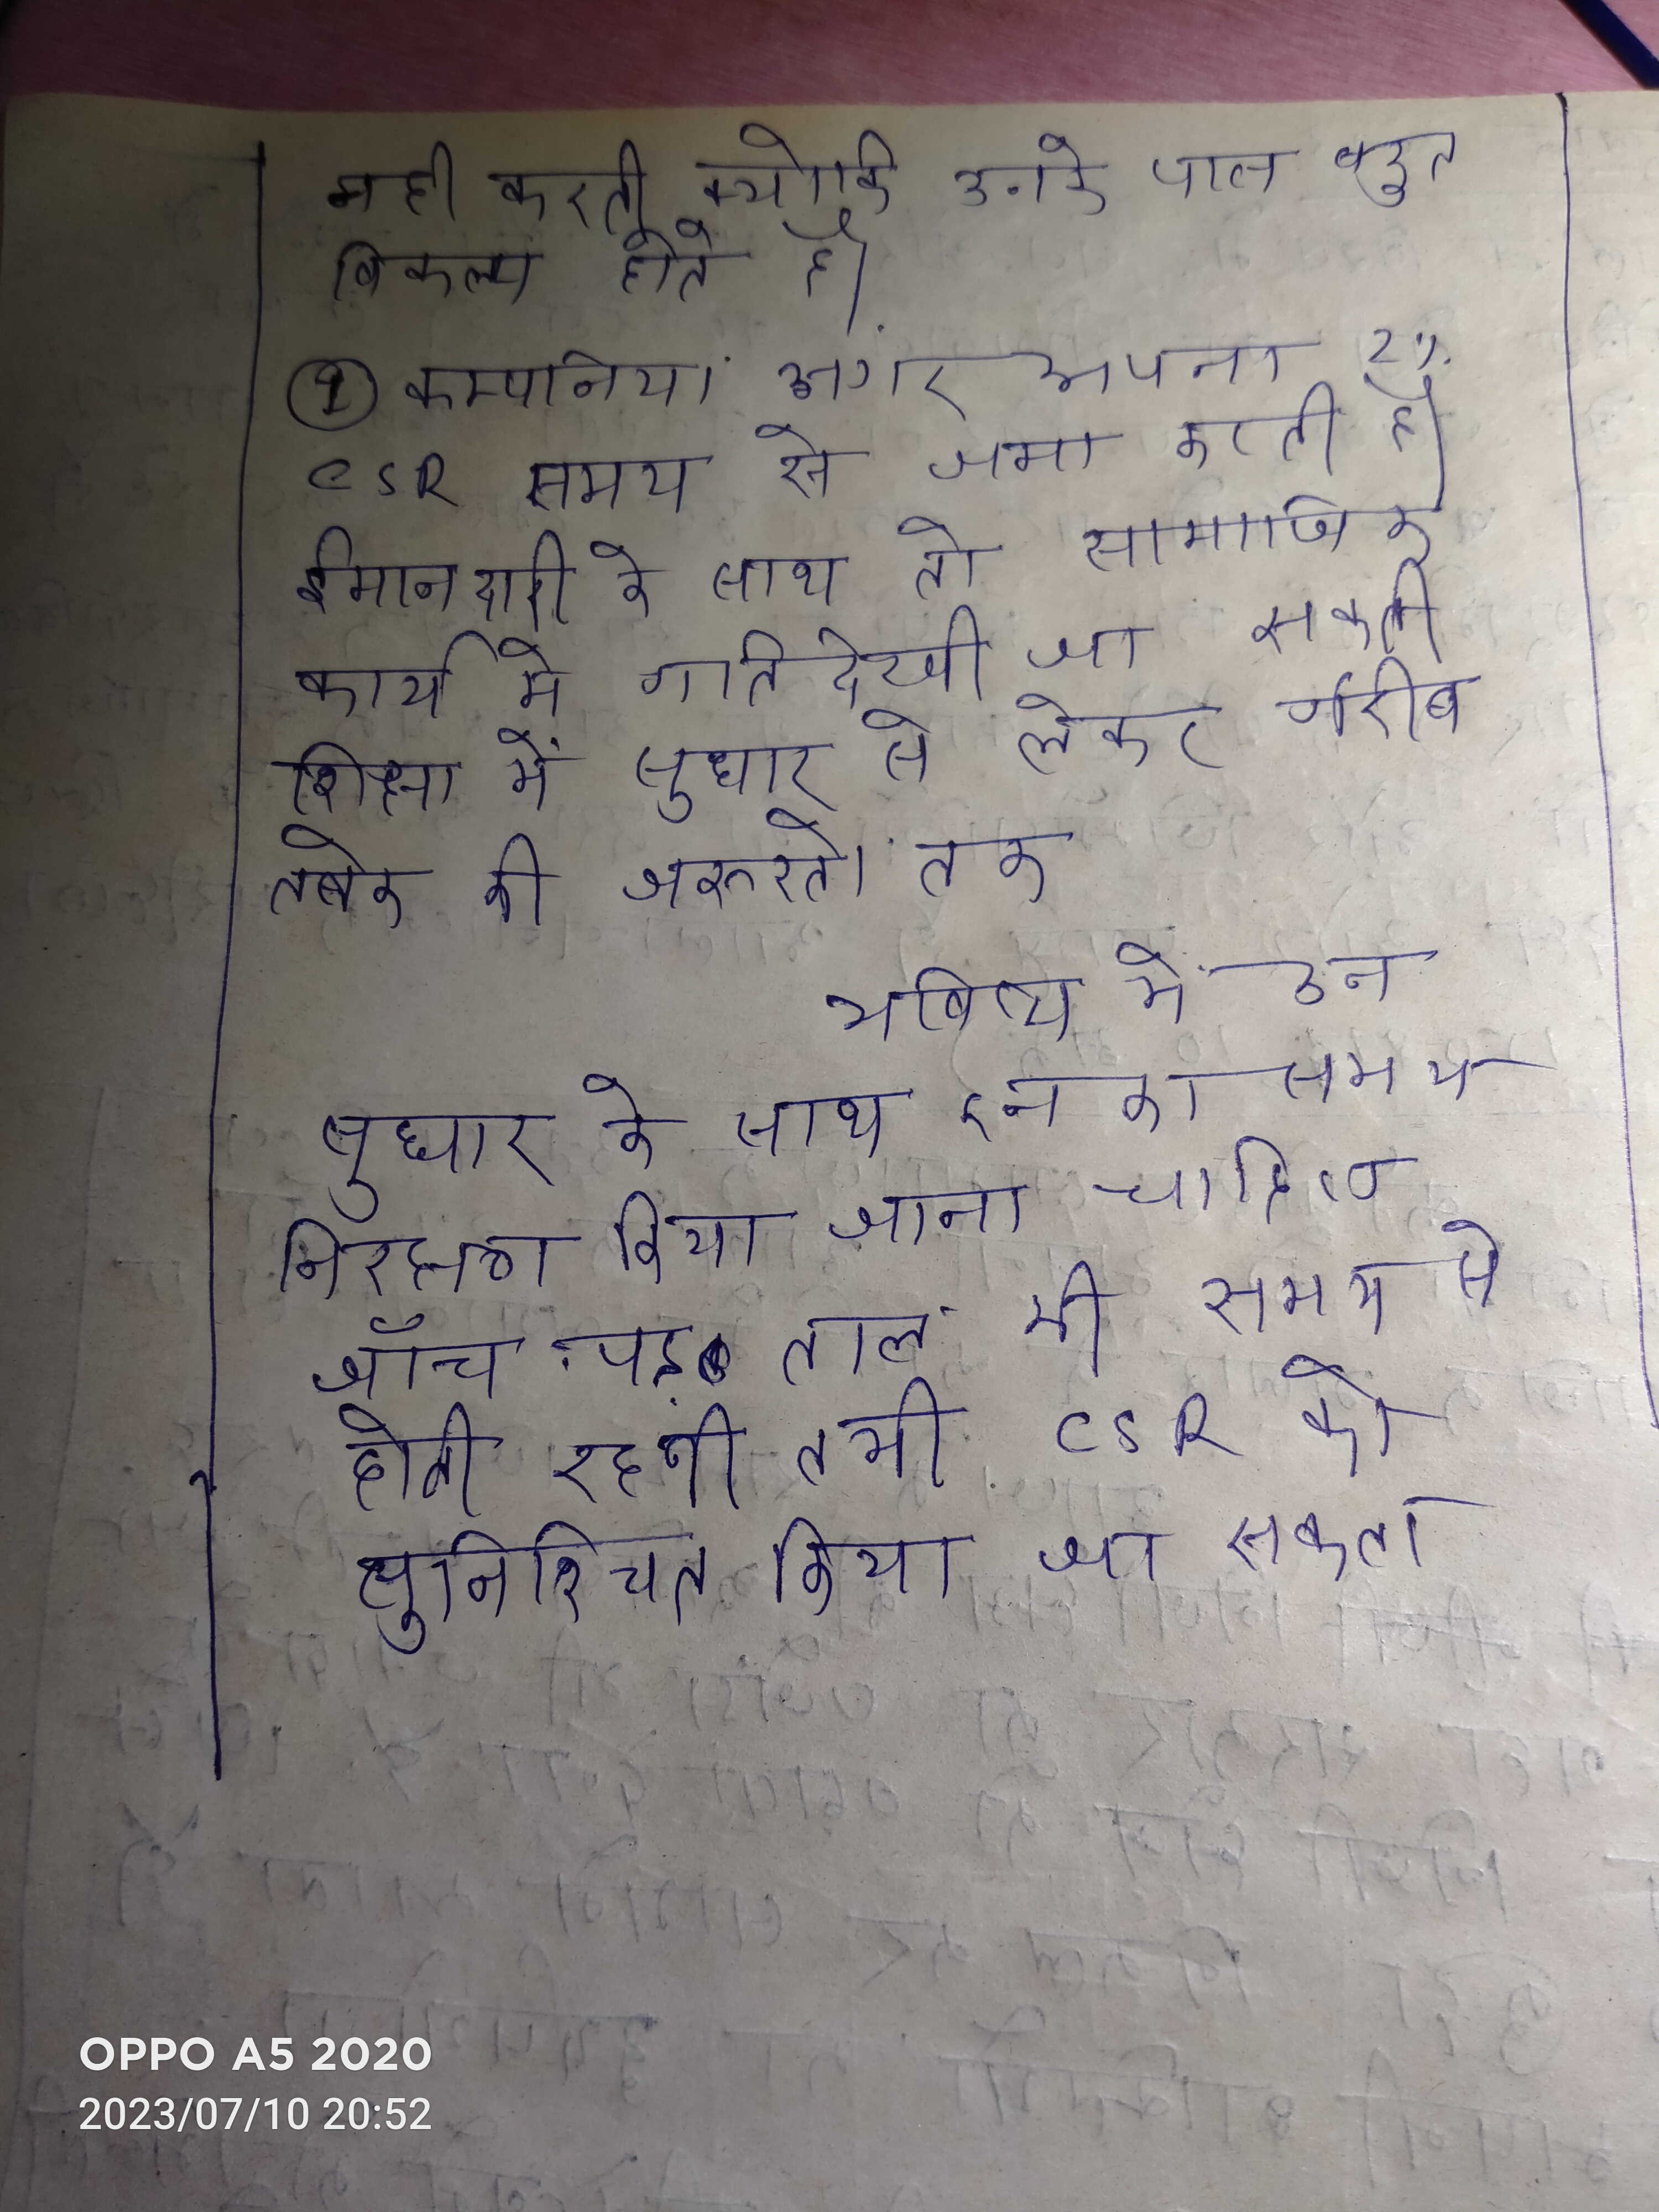 नही करती क्योकि उनके पास बहुत
विकल्प होते है।
① कम्पनियां अगर अपना 2%
CSR समय से जमा करती है।
ईमानदारी के साथ तो सामाजिक
कार्य मे गति देखी जा सकती
शिक्षा में सुधार से लेकर गरीब
तबके की जरूरतो तक
भविष्य में उन
सुधार के साथ इनका समय
निरक्षण किया जाना चाहिए
जाँच पड़ताल भी समय से
होती रहनी तभी CSR को
सुनिश्चित किया जा सकता
OPPO A5 2020
2023/07/10 20:52